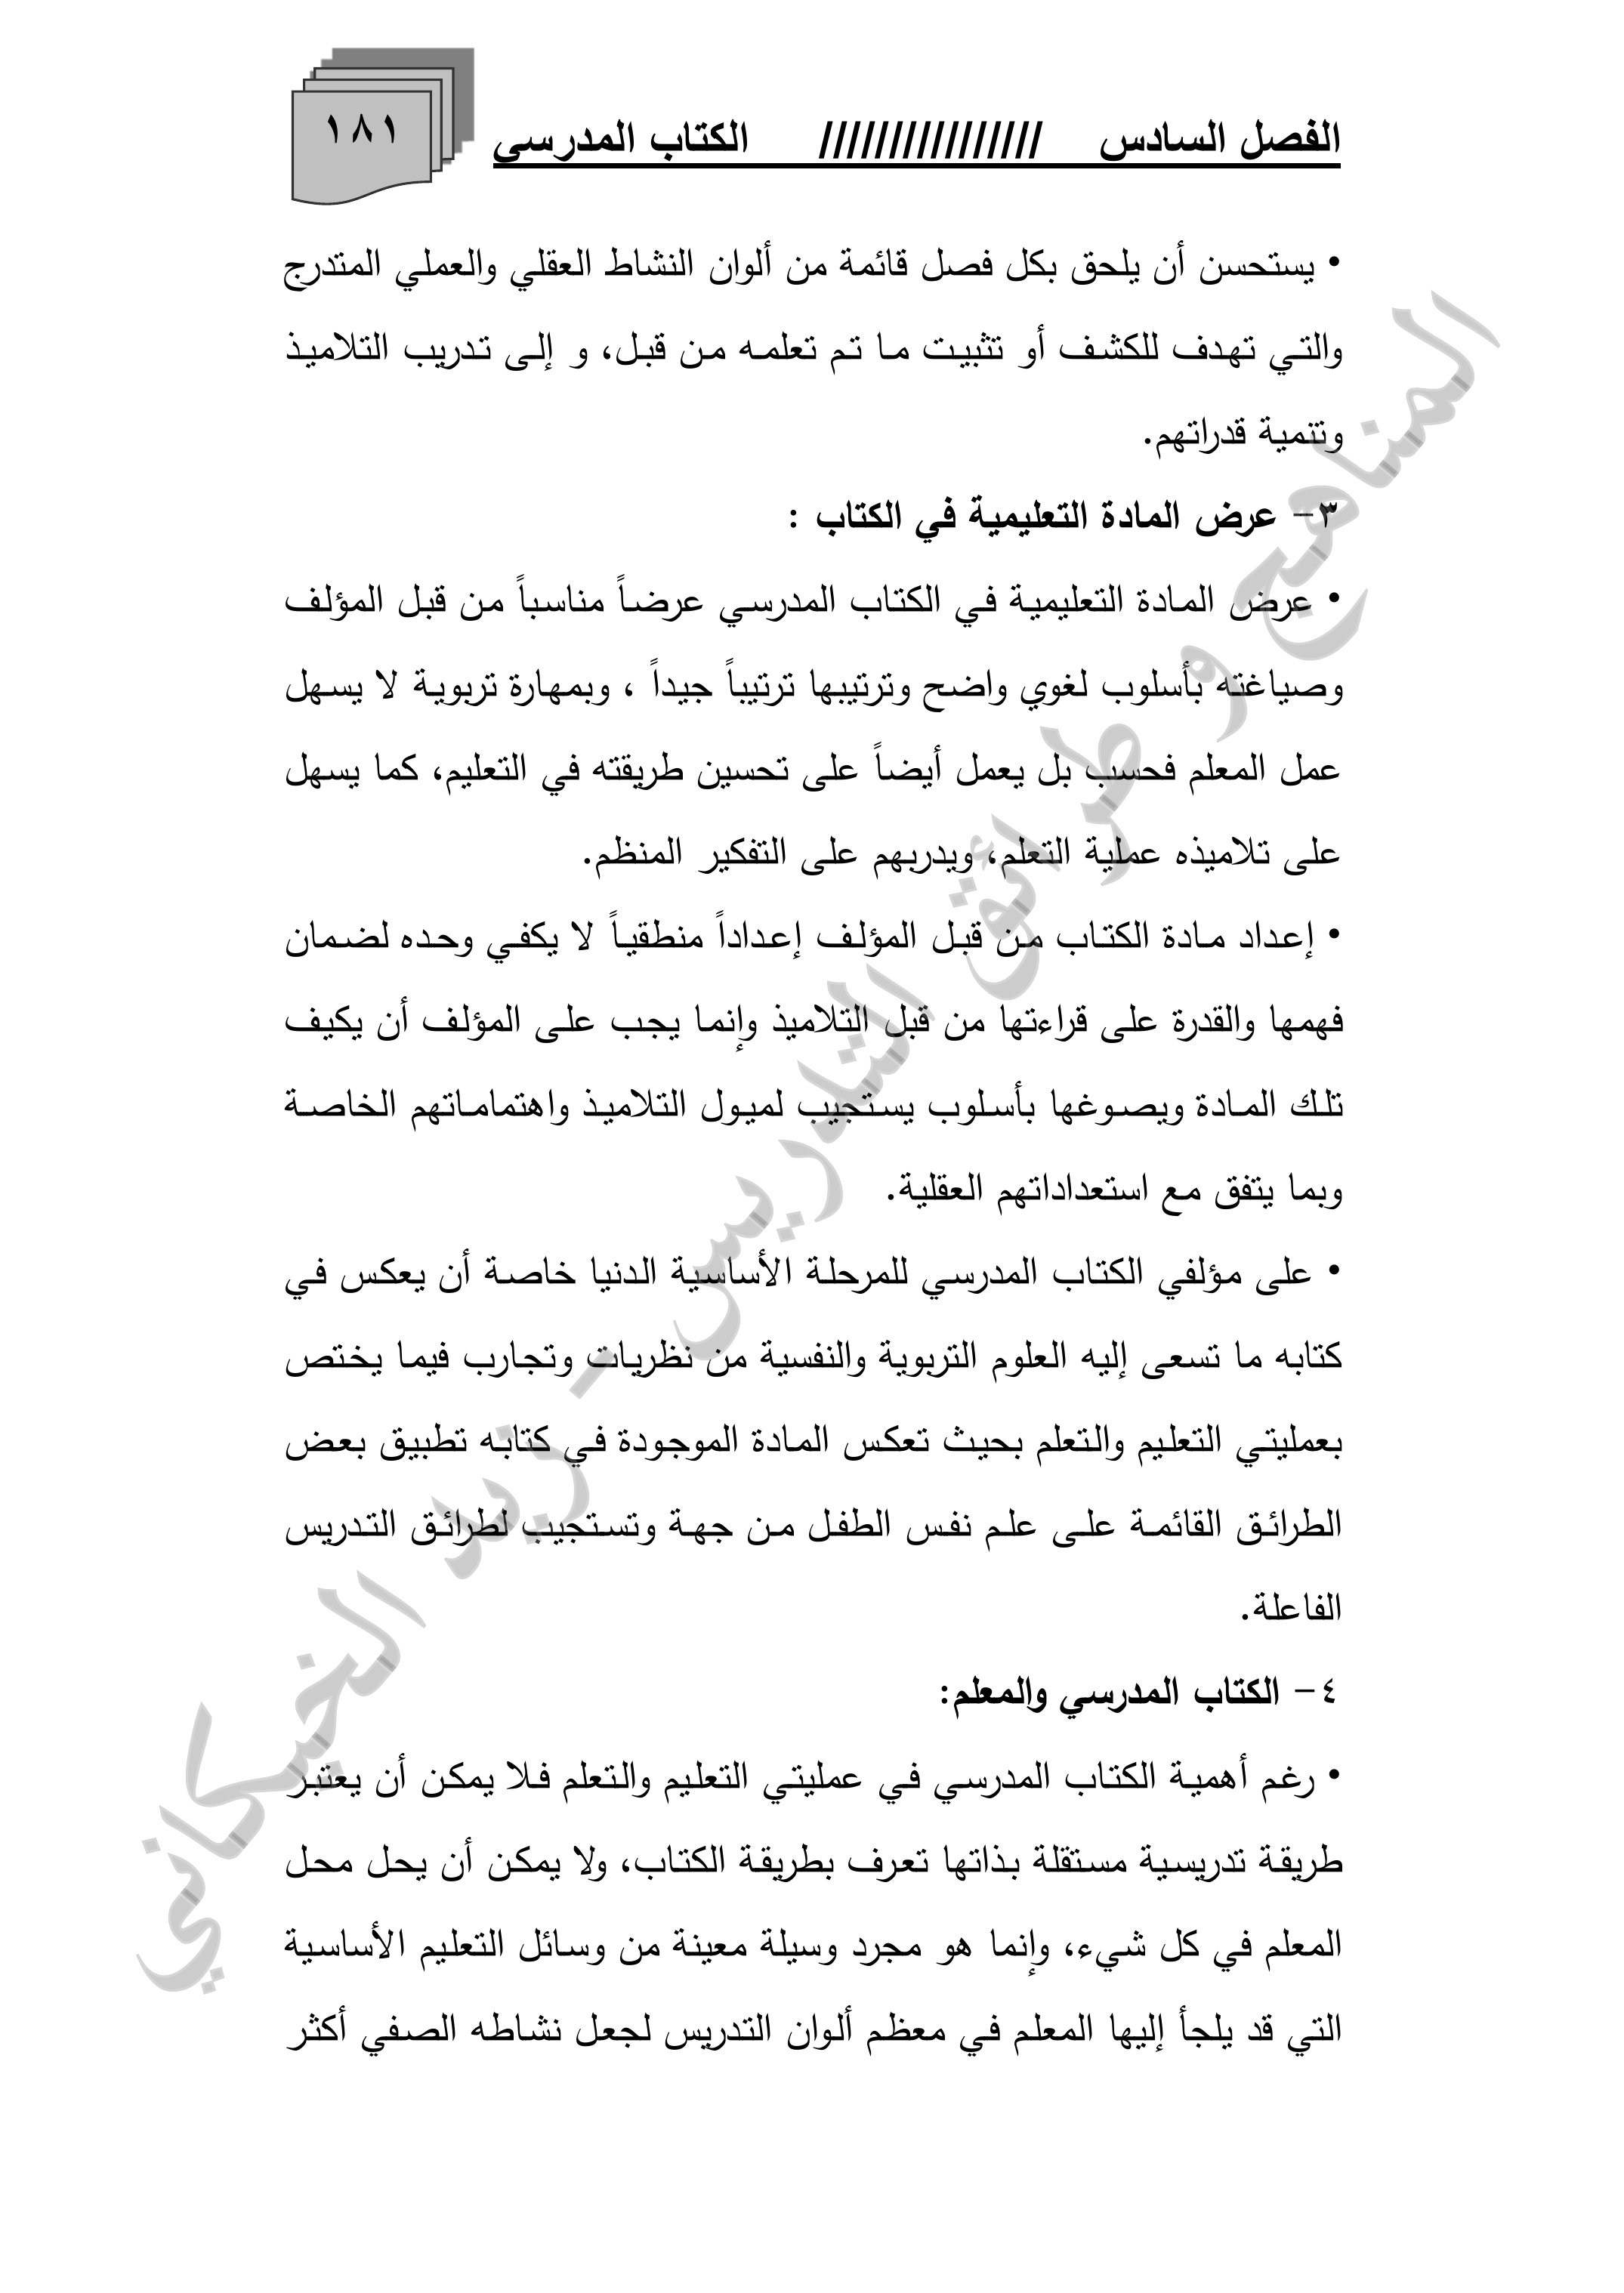 الفصل السادس //////////////// الكتاب المدرسي
١٨١
• يستحسن أن يلحق بكل فصل قائمة من ألوان النشاط العقلي والعملي المتدرج
والتي تهدف للكشف أو تثبيت ما تم تعلمه من قبل، و إلى تدريب التلاميذ
وتنمية قدراتهم.
٣- عرض المادة التعليمية في الكتاب :
• عرض المادة التعليمية في الكتاب المدرسي عرضاً مناسباً من قبل المؤلف
وصياغته بأسلوب لغوي واضح وترتيبها ترتيباً جيداً ، وبمهارة تربوية لا يسهل
عمل المعلم فحسب بل يعمل أيضاً على تحسين طريقته في التعليم، كما يسهل
على تلاميذه عملية التعلم، ويدربهم على التفكير المنظم.
• إعداد مادة الكتاب من قبل المؤلف إعداداً منطقياً لا يكفي وحده لضمان
فهمها والقدرة على قراءتها من قبل التلاميذ وإنما يجب على المؤلف أن يكيف
تلك المادة ويصوغها بأسلوب يستجيب لميول التلاميذ واهتماماتهم الخاصة
وبما يتفق مع استعداداتهم العقلية.
• على مؤلفي الكتاب المدرسي للمرحلة الأساسية الدنيا خاصة أن يعكس في
كتابه ما تسعى إليه العلوم التربوية والنفسية من نظريات وتجارب فيما يختص
بعمليتي التعليم والتعلم بحيث تعكس المادة الموجودة في كتابه تطبيق بعض
الطرائق القائمة على علم نفس الطفل من جهة وتستجيب لطرائق التدريس
الفاعلة.
٤- الكتاب المدرسي والمعلم:
• رغم أهمية الكتاب المدرسي في عمليتي التعليم والتعلم فلا يمكن أن يعتبر
طريقة تدريسية مستقلة بذاتها تعرف بطريقة الكتاب، ولا يمكن أن يحل محل
المعلم في كل شيء، وإنما هو مجرد وسيلة معينة من وسائل التعليم الأساسية
التي قد يلجأ إليها المعلم في معظم ألوان التدريس لجعل نشاطه الصفي أكثر
المناهج و طرائق التدريس - زيد الخيكاني